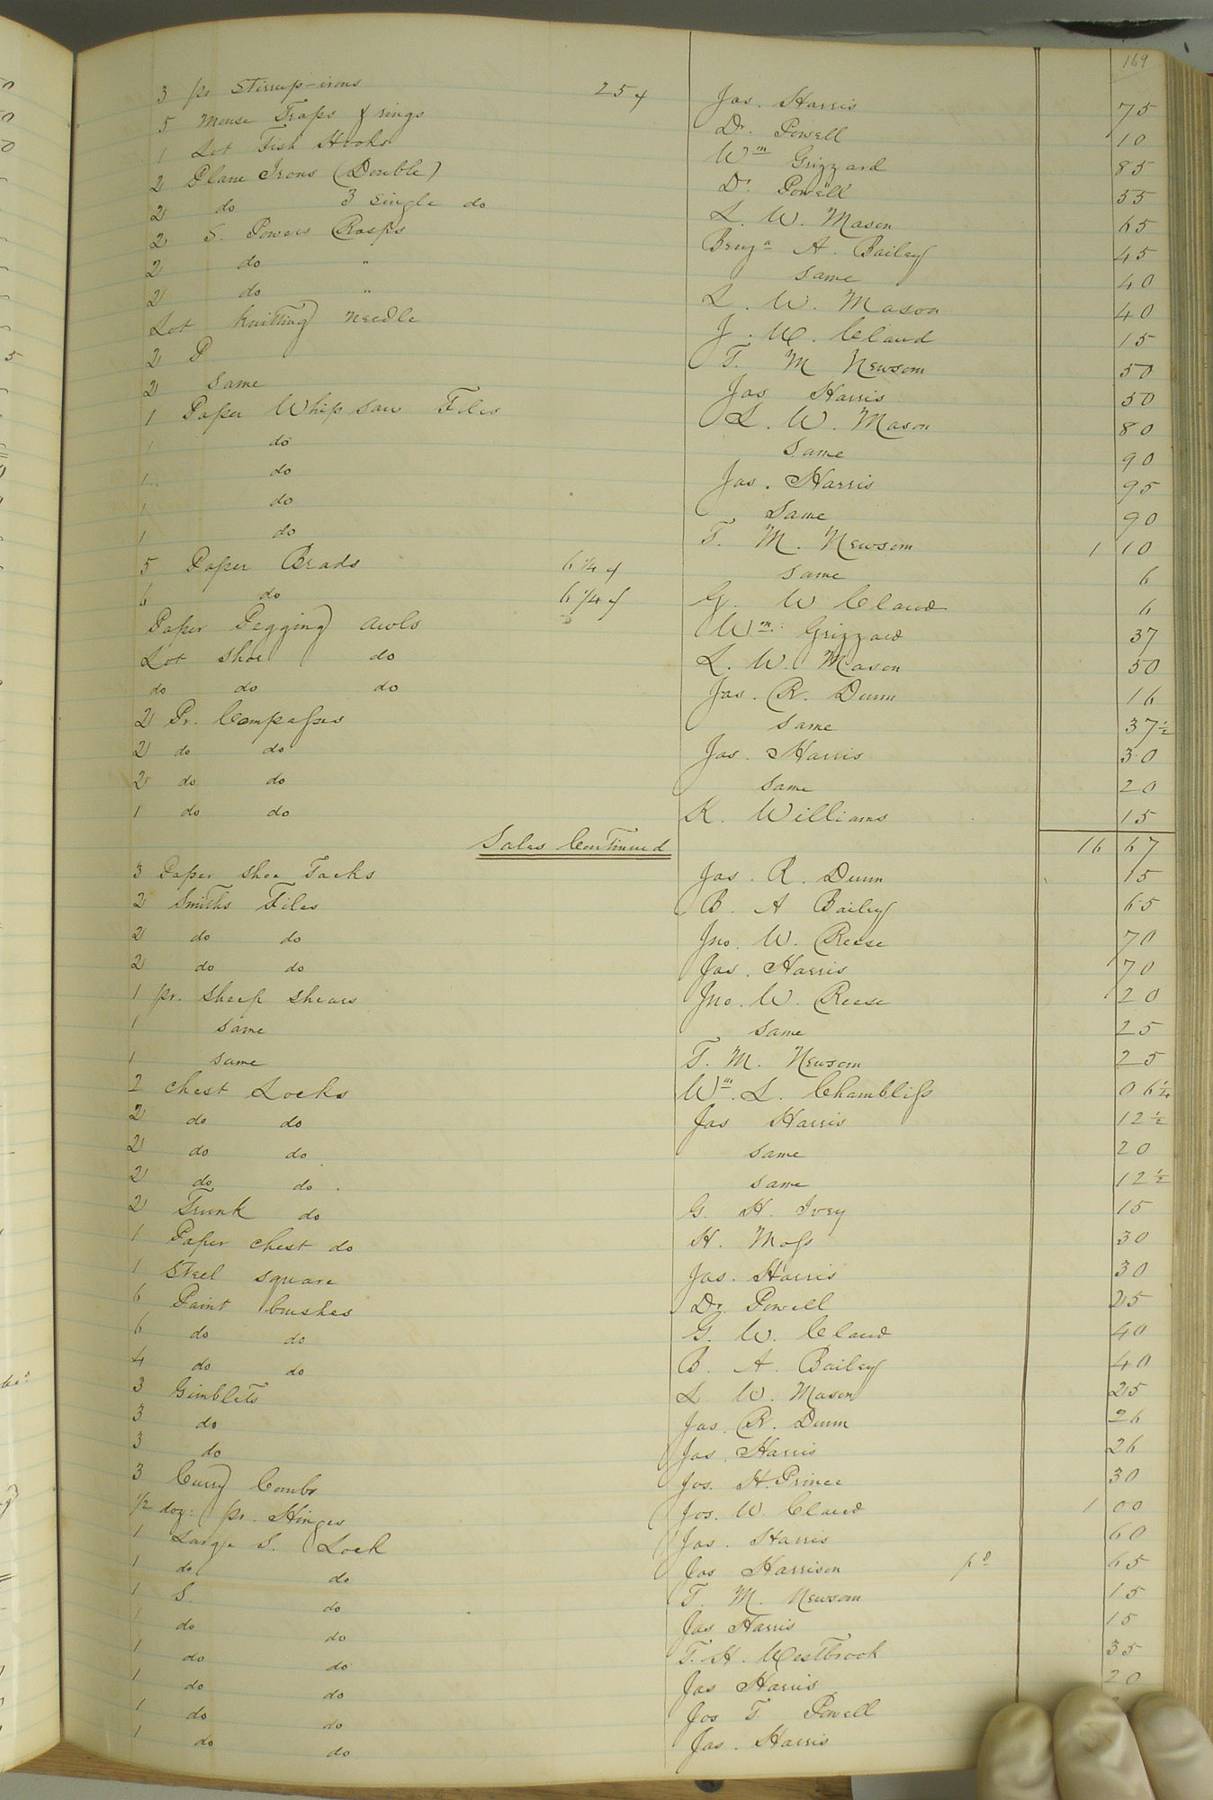 169
3 pr Stirrup-irons 25¢ Jas. Harris 75
5 Mouse Traps & rings Dr. Powell 10
1 Lot Fish Hooks Wm Grizzard 85
2 Plane Irons (Double) Dr. Powell 55
2 do 3 Single do L. W. Mason 65
2 S. Powers Rasps Benja A. Bailey 45
2 do " same 40
2 do " L. W. Mason 40
Lot Knitting Needle J. W. Claud 15
2 P T. M Newsom 50
2 same Jas Harris 50
1 Paper Whip saw Files L. W. Mason 80
1 do Same 90
1 do Jas. Harris 95
1 do Same 90
1 do T. M. Newsom 1 10
5 Paper Brads 6 1/4 ¢ same 6
6 do 6 1/4 ¢ G. W Claud 6
Paper Pegging awls Wm. Grizzard 37
Lot shoe do L. W. Mason 50
do do do Jas. R. Dunn 16
2 Pr. Compasses same 37 1/2
2 do do Jas. Harris 30
2 do do same 20
1 do do K. Williams 15
Sales Continued 16 67
3 Paper shoe Tacks Jas. R. Dunn 15
2 Smiths Files B. A Bailey 65
2 do do Jno. W. Reese 70
2 do do Jas. Harris 70
1 pr. Sheep shears Jno. W. Reese 20
1 same same 25
1 same T. M. Newsom 25
2 Chest Locks Wm. L. Chambliss 06 1/4
2 do do Jas Harris 12 1/2
2 do do same 20
2 do do. same 12 1/2
2 Trunk do G. H. Ivey 15
1 Paper chest do H. Moss 30
1 Steel square Jas. Harris 30
6 Paint brushes Dr. Powell 25
6 do do G. W. Claud 40
4 do do B. A. Bailey 40
3 Gimblets L W. Mason 25
3 do Jas. R. Dunn 26
3 do Jas. Harris 26
3 Curry Combs Jos. H. Prince 30
1/2 doz: pr. Hinges Jos. W. Claud 1 00
1 Large S. Lock Jas. Harris 60
1 do do Jas Harrison pd 65
1 S. do T. M. Newsom 15
1 do do Jas Harris 15
1 do do T. H. Westbrook 35
1 do do Jas Harris 20
1 do do Jos T. Powell
1 do do Jas. Harris